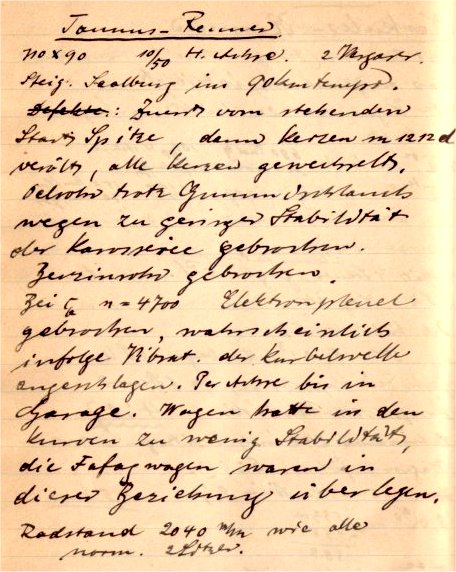 Taunus-Rennen
710 x 90 10/50 H. Achse. 2 Vergaser.
Steig. Saalburg im 90 km tempo.
Defekte.: Zuerst vom stehenden
Start Spitze, dann Kerzen m 1212 d
verölt, alle Kerzen gewechselt.
Oelrohr trotz Gummischlauch
wegen zu geringer Stabilität
der Karosserie gebrochen.
Benzinrohr gebrochen.
Bei ca n = 4700 Elektronpleuel
gebrochen, wahrscheinlich
infolge Vibrat. der Kurbelwelle
angeschlagen. Per Achse bis in
Garage. Wagen hatte in den
Kurven zu wenig Stabilität,
die Fafagwagen waren in
dieser Beziehung überlegen.
Radstand 2040 m/m wie alle
norm. 2 Sitzer.